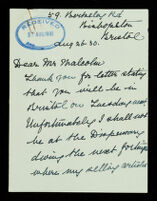 59. Berkeley Rd
Bishopston
Bristol
RECEIVED
27 AUG 1930
Aug 26. 30.
Dear Mr Malcolm
Thank you for letter stating
that you will be in
Bristol on Tuesday next.
Unfortunately I shall not
be at the Dispensary
during the next fortnight
where my selling articles